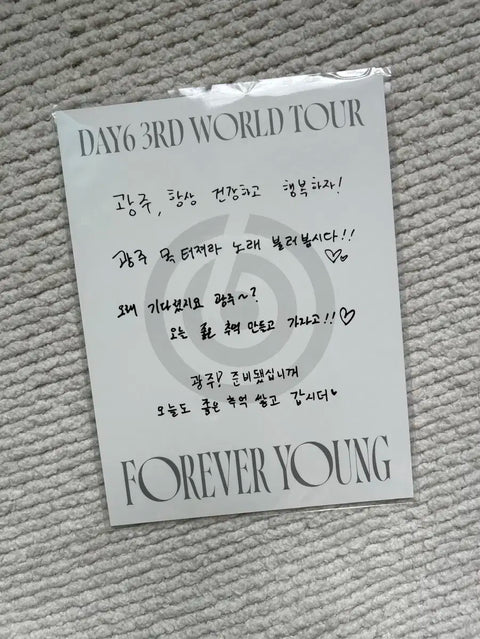 DAY6 3RD WORLD TOUR
광주, 항상 건강하고 행복하자!
광주 목 터져라 노래 불러봅시다!!
오래 기다렸지요 광주~?
오늘 좋은 추억 만들고 가라고!!
광주! 준비됐십니꺼
오늘도 좋은 추억 쌓고 갑시더
FOREVER YOUNG